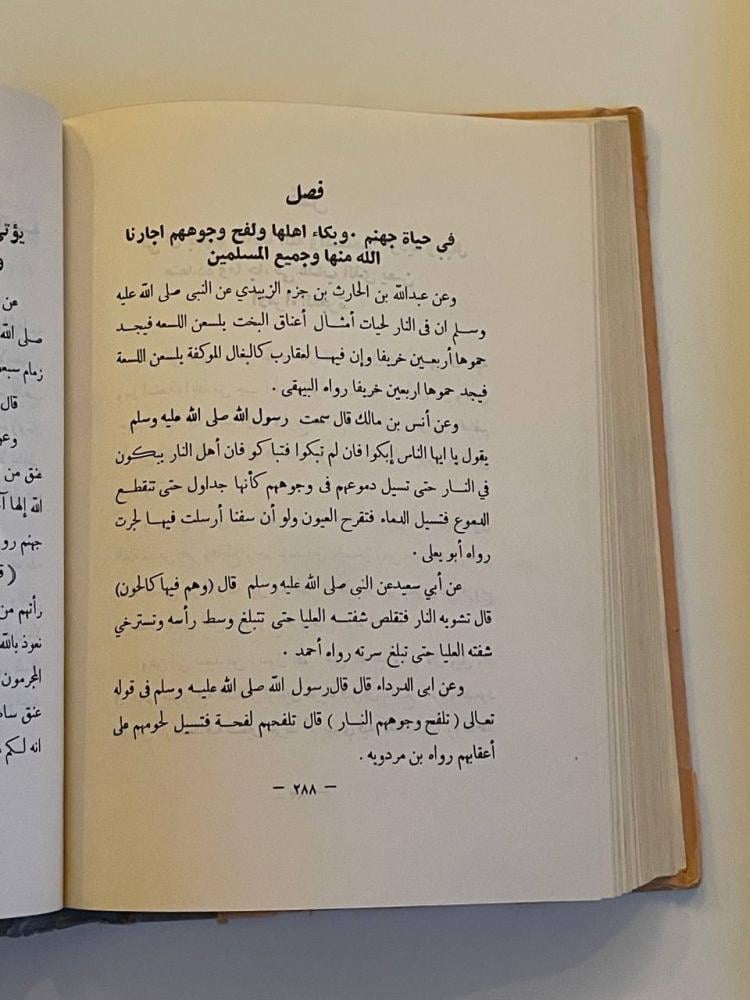 فصل
فى حياة جهنم . وبكاء اهلها ولفح وجوههم اجارنا
الله منها وجميع المسلمين
وعن عبدالله بن الحارث بن جزء الزبيدي عن النبى صلى الله عليه
وسلم ان فى النار لحيات أمثال أعناق البخت يلسعن اللسعه فيجد
حموها أربعين خريفا وإن فيها لعقارب كالبغال الموكفة يلسعن اللسعة
فيجد حموها اربعين خريفا رواه البيهقى .
وعن أنس بن مالك قال سمعت رسول الله صلى الله عليه وسلم
يقول يا ايها الناس إبكوا فان لم تبكوا فتباكو فان أهل النار يبكون
في النار حتى تسيل دموعهم فى وجوههم كأنها جداول حتى تنقطع
الدموع فتسيل الدماء فتقرح العيون ولو أن سفنا أرسلت فيها لجرت
رواه أبو يعلى .
عن أبي سعيدعن النبى صلى الله عليه وسلم قال (وهم فيها كالحون)
قال تشويه النار فتقلص شفته العليا حتى تتبلغ وسط رأسه وتسترخي
شفته العليا حتى تبلغ سرته رواه أحمد .
وعن ابى الدرداء قال قال رسول الله صلى الله عليه وسلم فى قوله
تعالى ( تلفح وجوههم النار ) قال تلفحهم لفحة فتسيل لحومهم على
أعقابهم رواه بن مردويه .
— ٢٨٨ —
يؤتى
عن
صلى الله
زمام سبعو
قال
وعن
عنق من
الله إلها آ
جهنم رو
رأتهم من
نعوذ بالله
المجرمون
عنق سا
انه لكم